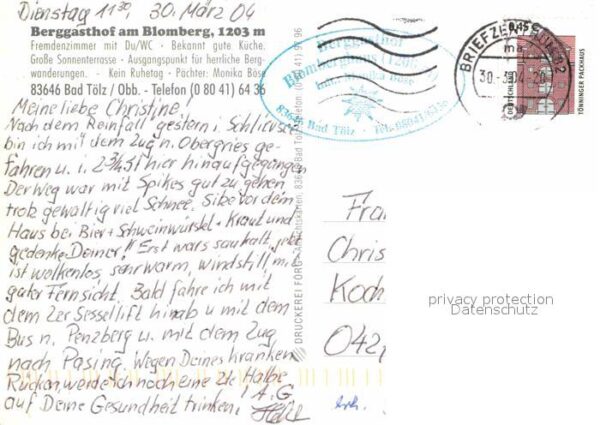 Dienstag 11³⁰, 30. März 04
Berggasthof am Blomberg, 1203 m
Fremdenzimmer mit Du/WC · Bekannt gute Küche.
Große Sonnenterrasse · Ausgangspunkt für herrliche Berg-
wanderungen. · Kein Ruhetag · Pächter: Monika Böse
83646 Bad Tölz / Obb. - Telefon (0 80 41) 64 36
Meine liebe Christine!
Nach dem Reinfall gestern i. Schliersee
bin ich mit dem Zug n. Obergries ge-
fahren u. i. 2 3/4 St hier hinaufgegangen
Der Weg war mit Spikes gut zu gehen
trotz gewaltig viel Schnee. Sitze vor dem
Haus bei Bier + Schweinwürstel + Kraut und
gedenke Deiner! Erst wars saukalt, jetzt
ist wolkenlos sehr warm, windstill, mit
guter Fernsicht. Bald fahre ich mit
dem 2er Sessellift hinab u mit dem
Bus n. Penzberg u. mit dem Zug
nach Pasing. Wegen Deines kranken
Rücken, werde ich noch eine 2te Halbe
auf Deine Gesundheit trinken! A. G.
Berggasthof
Blomberghaus
83646 Bad Tölz
BRIEFZENTRUM 82
30.-3.04-20
0,45
DEUTSCHLAND
TÖNNINGER PACKHAUS
DRUCKEREI FORG
Frau
Chris
Koch
042
privacy protection
Datenschutz